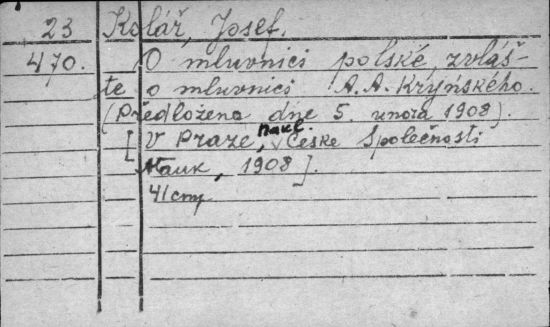 23 Kolář, Josef.
470. O mluvnici polské, zvláš-
tě o mluvnici A. A. Kryńského.
(Předložena dne 5. února 1908).
[V Praze, nakl. České Společnosti
Nauk, 1908].
41 cm